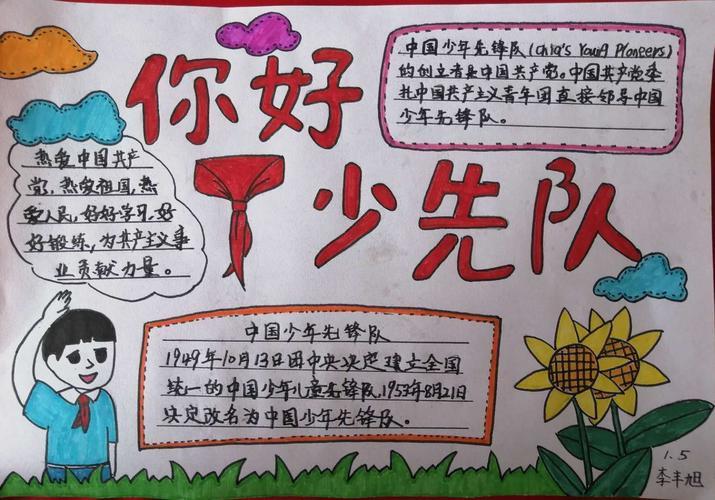 你好
少先队
中国少年先锋队(China's Young Pioneers)
的创立者是中国共产党。中国共产党委
托中国共产主义青年团直接领导中国
少年先锋队。
热爱中国共产
党,热爱祖国,热
爱人民,好好学习,好
好锻炼,为共产主义事
业贡献力量。
中国少年先锋队
1949年10月13日团中央决定建立全国
统一的中国少年儿童先锋队,1953年8月21日
决定改名为中国少年先锋队。
1.5
李丰旭